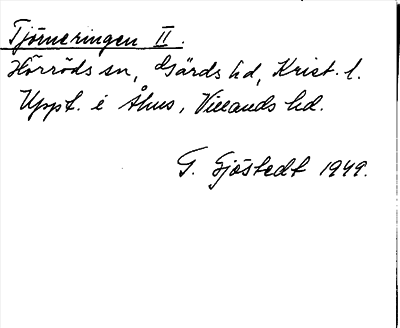 Tjörneringen II.
Hörröds sn, Gärds hd, Krist. l.
Uppt. i Åhus, Villands hd.
G. Sjöstedt 1949.